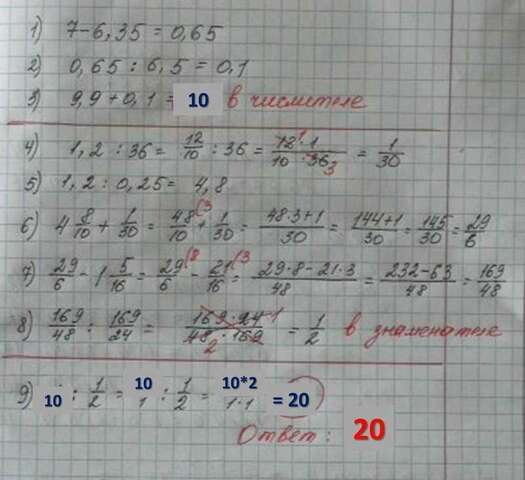 1) 7 - 6,35 = 0,65
2) 0,65 : 6,5 = 0,1
3) 9,9 + 0,1 = 10 в числителе
4) 1,2 : 36 = 12/10 : 36 = 12¹·1/10·36₃ = 1/30
5) 1,2 : 0,25 = 4,8
6) 4 8/10 + 1/30 = 48/10 (3 + 1/30 = 48·3+1/30 = 144+1/30 = 145/30 = 29/6
7) 29/6 - 1 5/16 = 29/6 (8 - 21/16 (3 = 29·8-21·3/48 = 232-63/48 = 169/48
8) 169/48 : 169/24 = 169·24 1/48·169 2 = 1/2 в знаменателе
9) 10 : 1/2 = 10/1 : 1/2 = 10*2/1·1 = 20
Ответ: 20